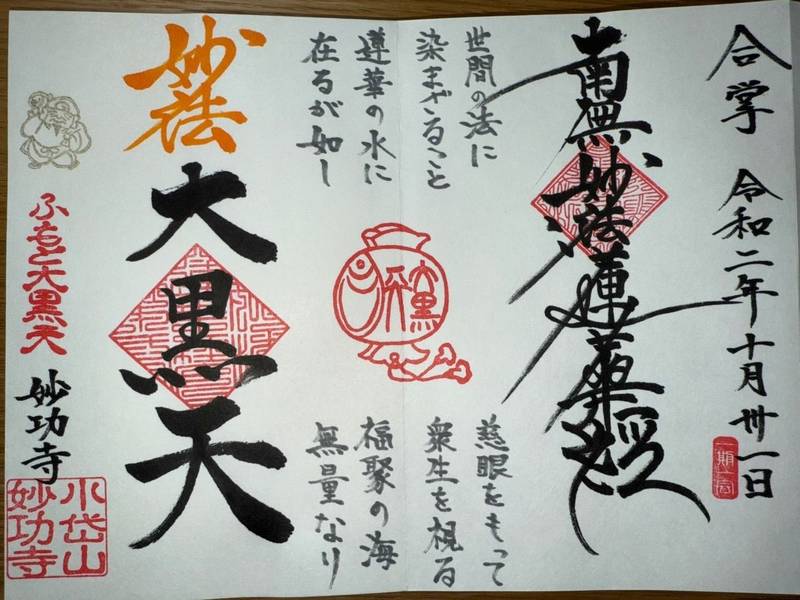 合掌 令和二年十月卅一日
一期一会
南無妙法蓮華経
世間の法に
染まざること
蓮華の水に
在るが如し
慈眼をもって
衆生を視る
福聚の海
無量なり
大黒天
妙法
大黒天
ふもと大黒天
妙功寺
小岱山
妙功寺